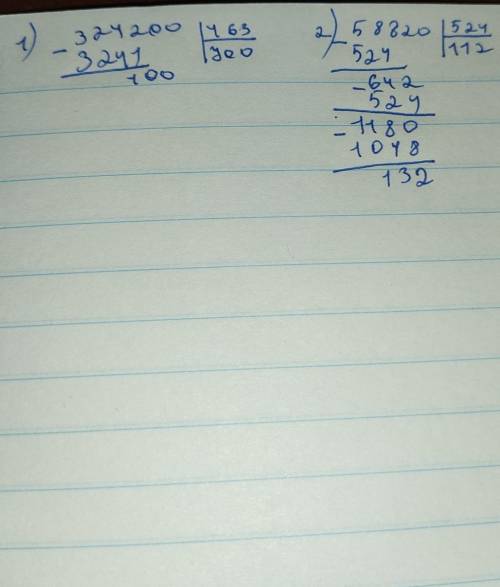 1) - 324200 | 463
3241 | 700
100
2) - 58820 | 524
524 | 112
- 642
524
- 1180
1048
132